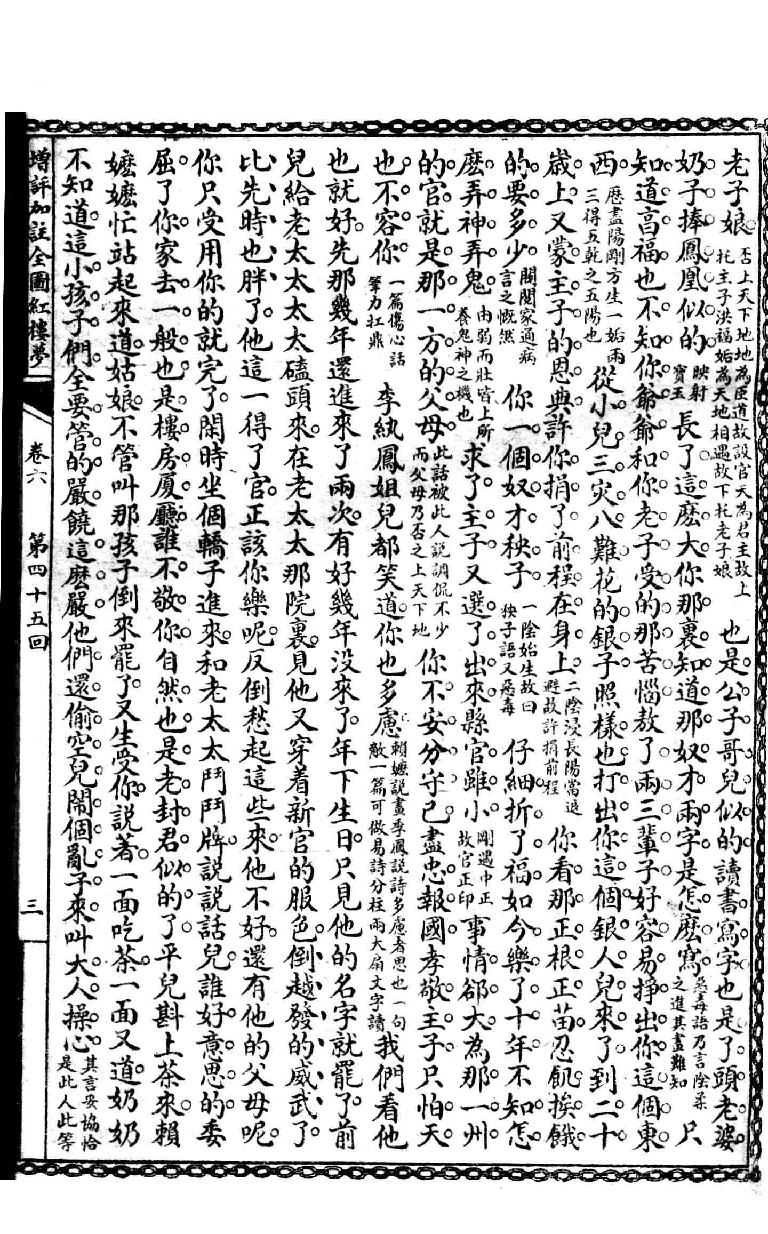 老子娘否上天下地地為臣道故設官天為君主故上托主子洪福姤為天地相遇故下托老子娘也是公子哥兒似的讀書寫字也是了頭老婆
奶子捧鳳凰似的映射寶玉長了這麽大你那裏知道那奴才兩字是怎麽寫惡毒語乃言陰柔之進其盡難知只
知道享福也不知你爺爺和你老子受的那苦惱熬了兩三輩子好容易掙出你這個東
西歷盡陽剛方生一姤兩三得五乾之五陽也從小兒三灾八難花的銀子照樣也打出你這個銀人兒來了到二十
歲上又蒙主子的恩典許你捐了前程在身上二陰浸長陽當退避故許捐前程你看那正根正苗忍飢挨餓
的要多少閥閱家通病言之慨然你一個奴才秧子一陰始生故曰秧子語又惡毒仔細折了福如今樂了十年不知怎
麽弄神弄鬼由弱而壯皆上所養鬼神之機也求了主子又選了出來縣官雖小剛遇中正故官正印事情卻大為那一州
的官就是那一方的父母此話被此人説調侃不少而父母乃否之上天下地你不安分守已盡忠報國孝敬主子只怕天
也不容你一篇傷心話筆力扛鼎李紈鳳姐兒都笑道你也多慮賴嬤説畫季鳳説詩多慮者思也一句敵一篇可做易詩分柱兩大扇文字讀我們看他
也就好先那幾年還進來了兩次有好幾年没來了年下生日只見他的名字就罷了前
兒給老太太太太磕頭來在老太太那院裏見他又穿着新官的服色倒越發的威武了
比先時也胖了他這一得了官正該你樂呢反倒愁起這些來他不好還有他的父母呢
你只受用你的就完了閑時坐個轎子進來和老太太鬥鬥牌説説話兒誰好意思的委
屈了你家去一般也是樓房厦廳誰不敬你自然也是老封君似的了平兒斟上茶來賴
嬷嬷忙站起來道姑娘不管叫那孩子倒來罷了又生受你説着一面吃茶一面又道奶奶
不知道這小孩子們全要管的嚴饒這麽嚴他們還偷空兒鬧個亂子來叫大人操心其言妥協恰是此人此等
增評加註全圖紅樓夢
卷六
第四十五回
三